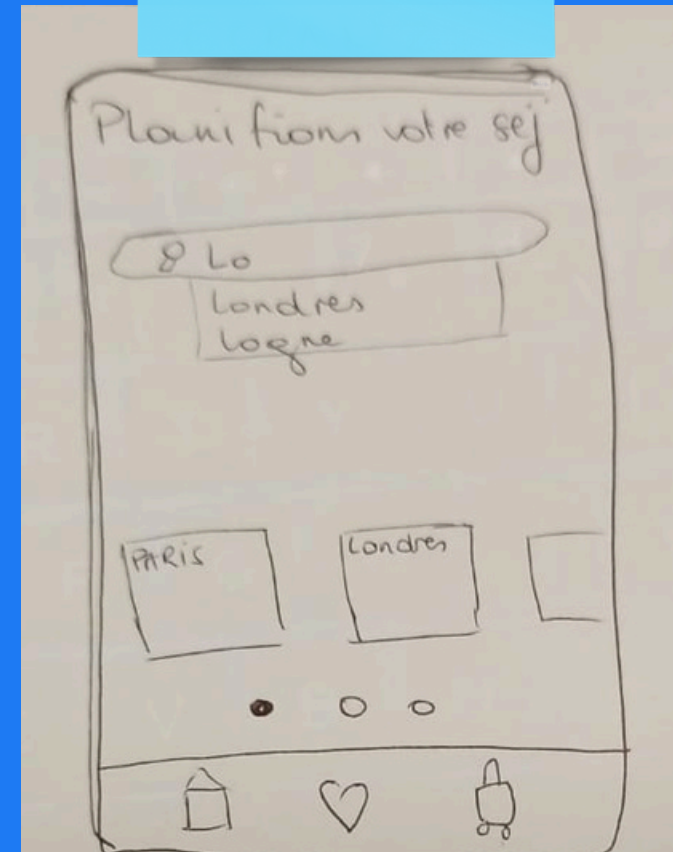 Planifions votre séj
Lo
Londres
Logne
PARIS
Londres